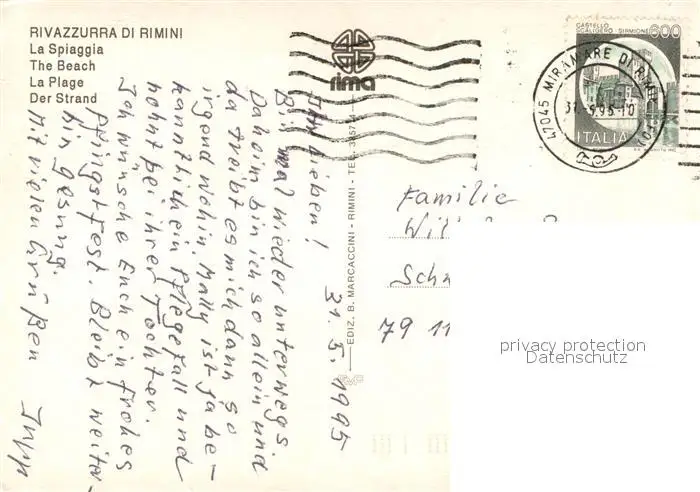 RIVAZZURRA DI RIMINI
La Spiaggia
The Beach
La Plage
Der Strand
rima
CASTELLO
SCALIGERO - SIRMIONE
600
ITALIA
47045 MIRAMARE DI RIMINI
31.5.95-10
Ihr Lieben! 31.5.1995
Bin mal wieder unterwegs.
Daheim bin ich so allein und
da treibt es mich dann so
irgend wohin. Mally ist ja be-
kanntlich ein Pflegefall und
wohnt bei ihrer Tochter.
Ich wünsche Euch ein frohes
Pfingstfest. Bleibt weiter-
hin gesung.
Mit vielen Grüßen
EDIZ. B. MARCACCINI - RIMINI - TEL.
Familie
Wil
Sch
79 11
privacy protection
Datenschutz